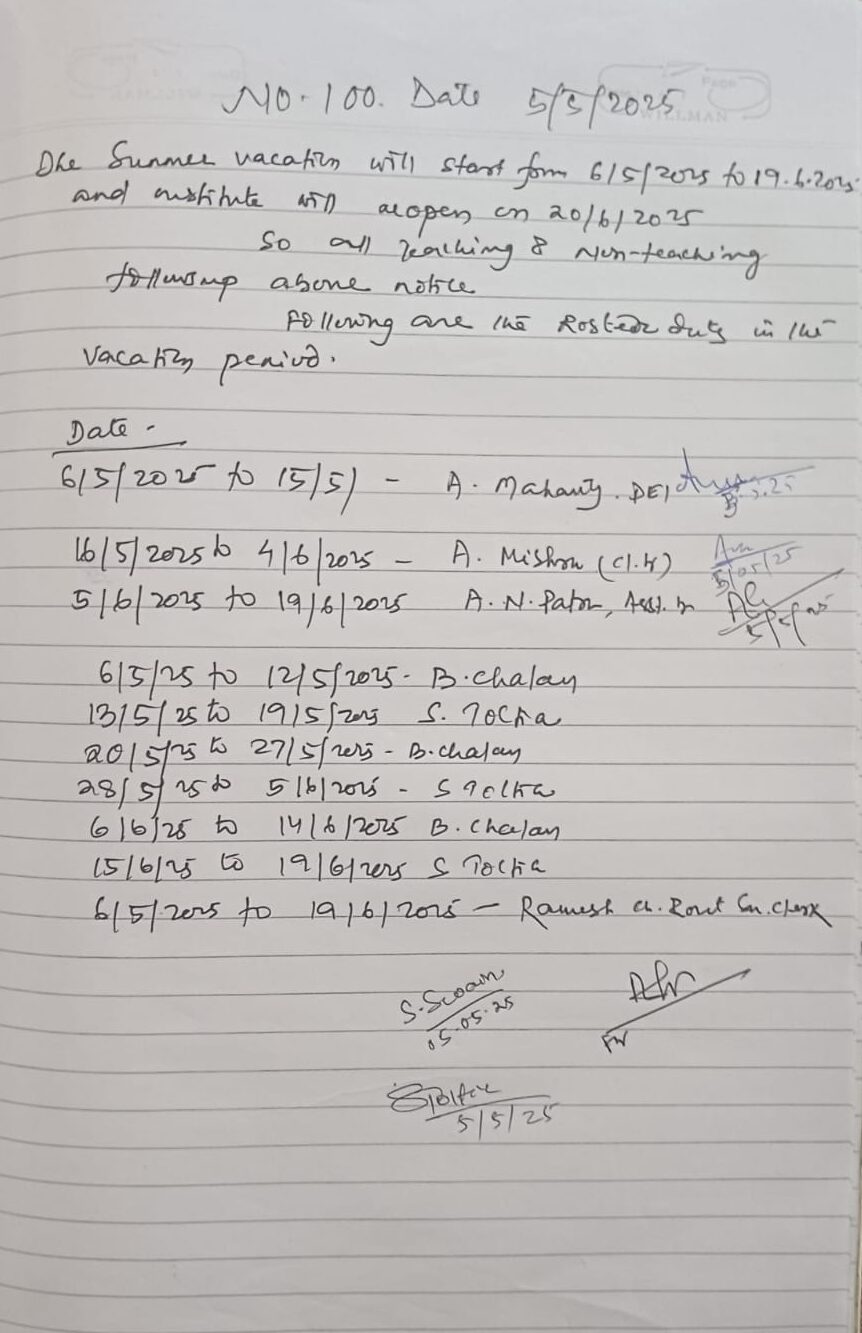 NO. 100. Date 5/5/2025
The Summer vacation will start form 6/5/2025 to 19.6.2025
and institute will reopen on 20/6/2025
So all teaching & Non-teaching
following above notice
Following are the Roster duty in the
Vacation period.
Date -
6/5/2025 to 15/5/ - A. Mahanty. DEI
16/5/2025 to 4/6/2025 - A. Mishra (Cl.
5/6/2025 to 19/6/2025 A. N. Patra, Asst.
6/5/25 to 12/5/2025 - B. Chalan
13/5/25 to 19/5/2025 S. Tocka
20/5/25 to 27/5/2025 - B. chalan
28/5/25 to 5/6/2025 - S Tolka
6/6/25 to 14/6/2025 B. Chalan
15/6/25 to 19/6/2025 S Tocka
6/5/2025 to 19/6/2025 - Ramesh ch. Rout Sn. Clerk
5/05/25
5/5/25
S. Swain
05.05.25
5/5/25